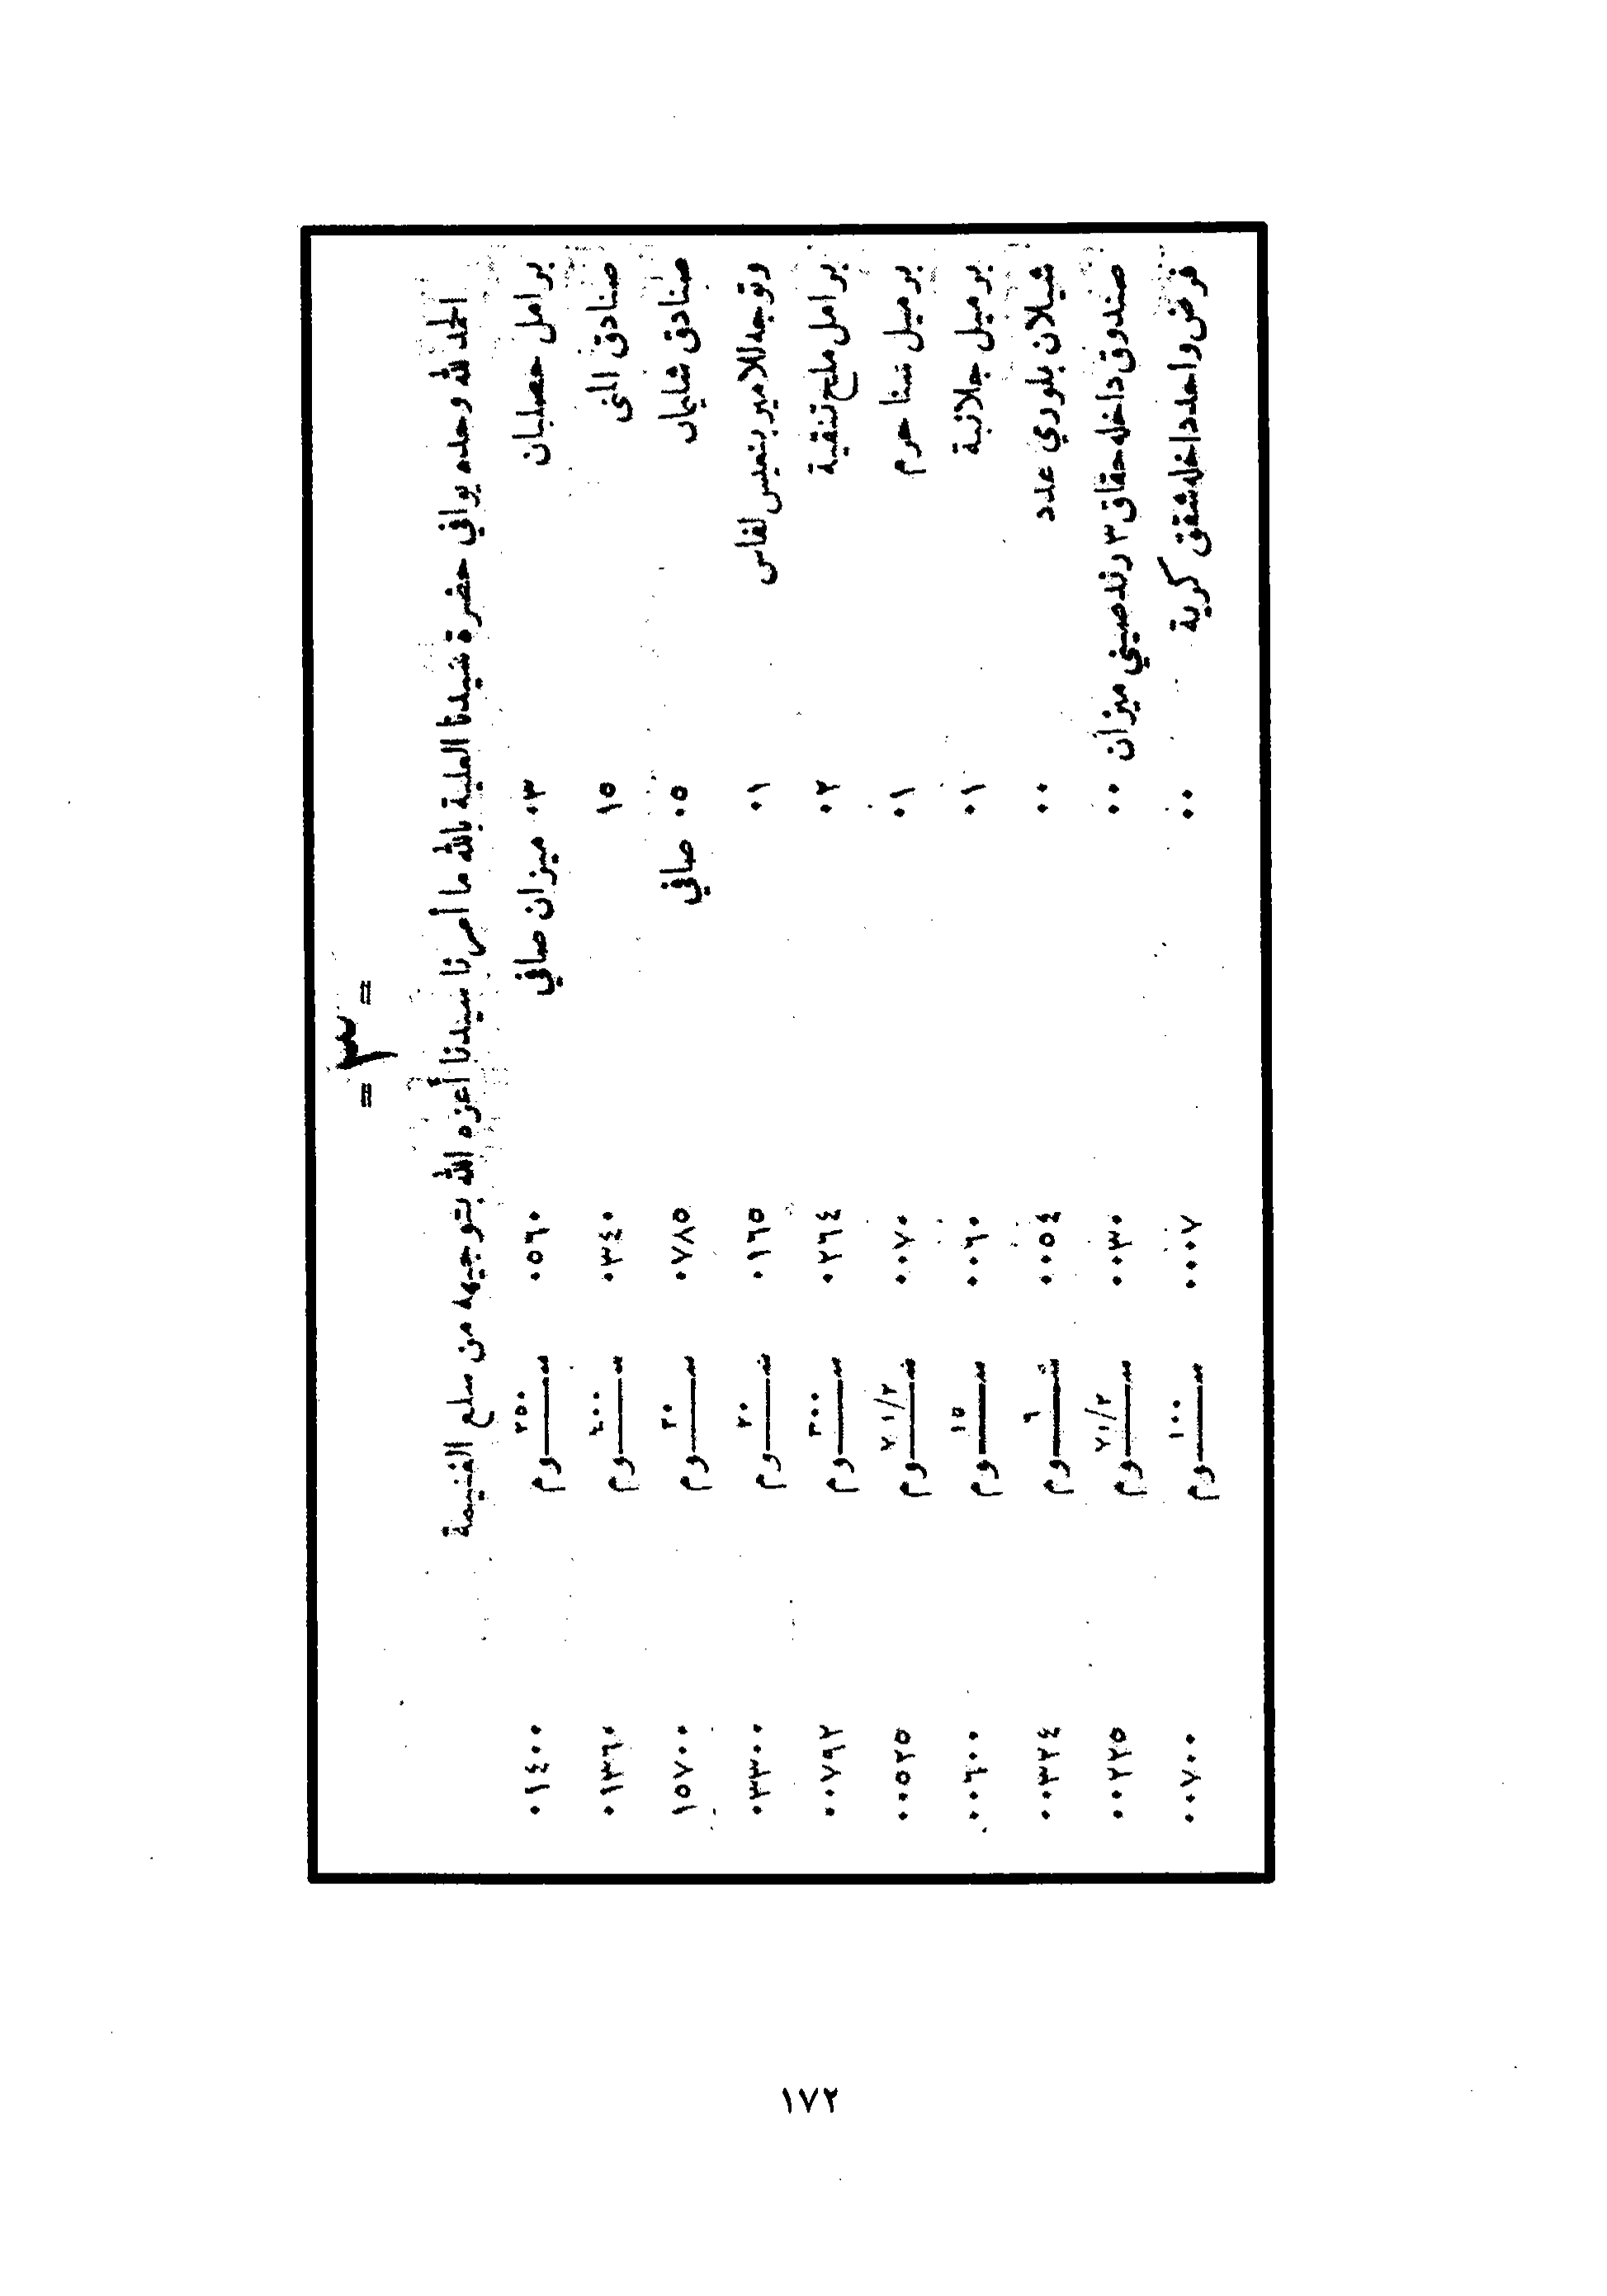 = ٣ =
الحمد لله وحده يوافي حضرة سيدنا العلية بالله ما أمرنا سيدنا أعزه الله بتوجيهه من سلع الغنيمة
برامل حصلبان ٠٣ ميزان صافي ٠٥٦٠ ســوم ٢٥٠ ٠١٤٠٠
صنادق المنى ١٥ ٠٣٤٠ ســوم ٤٠٠ ٠١٣٦٠
صنادق شليمان ٠٥ صافي ٠٧٨٥ ســوم ٢٠ ١٥٧٠٠
وتوجه للامير بنعيس لفاس ٠١ ٠١٦٥ ســوم ٢٠ ٠٣٣٠٠
برامل ملح تنقية ٠٢ ٠٢٦٤ ســوم ٣٠٠ ٠٠٧٩٢
برميل سنا حرم ٠١ ٠٠٧٠ ســوم ٧ ١/٢ ٠٠٥٢٥
برميل جلانبة ٠١ ٠٠٦٠ ســوم ١٥ ٠٠٦٠٠
شيلان بلوري عدد ٠٠ ٠٠٥٤ ســوم ٦ ٠٠٣٢٤
صندوق داخله حقاق ٣ رند صيني ميزان ٠٠ ٠٠٣٠ ســوم ٧ ١/٢ ٠٠٢٢٥
فرض واحد داخله شقق كرية ٠٠ ٠٠٠٧ ســوم ١٠٠ ٠٠٧٠٠
١٧٢